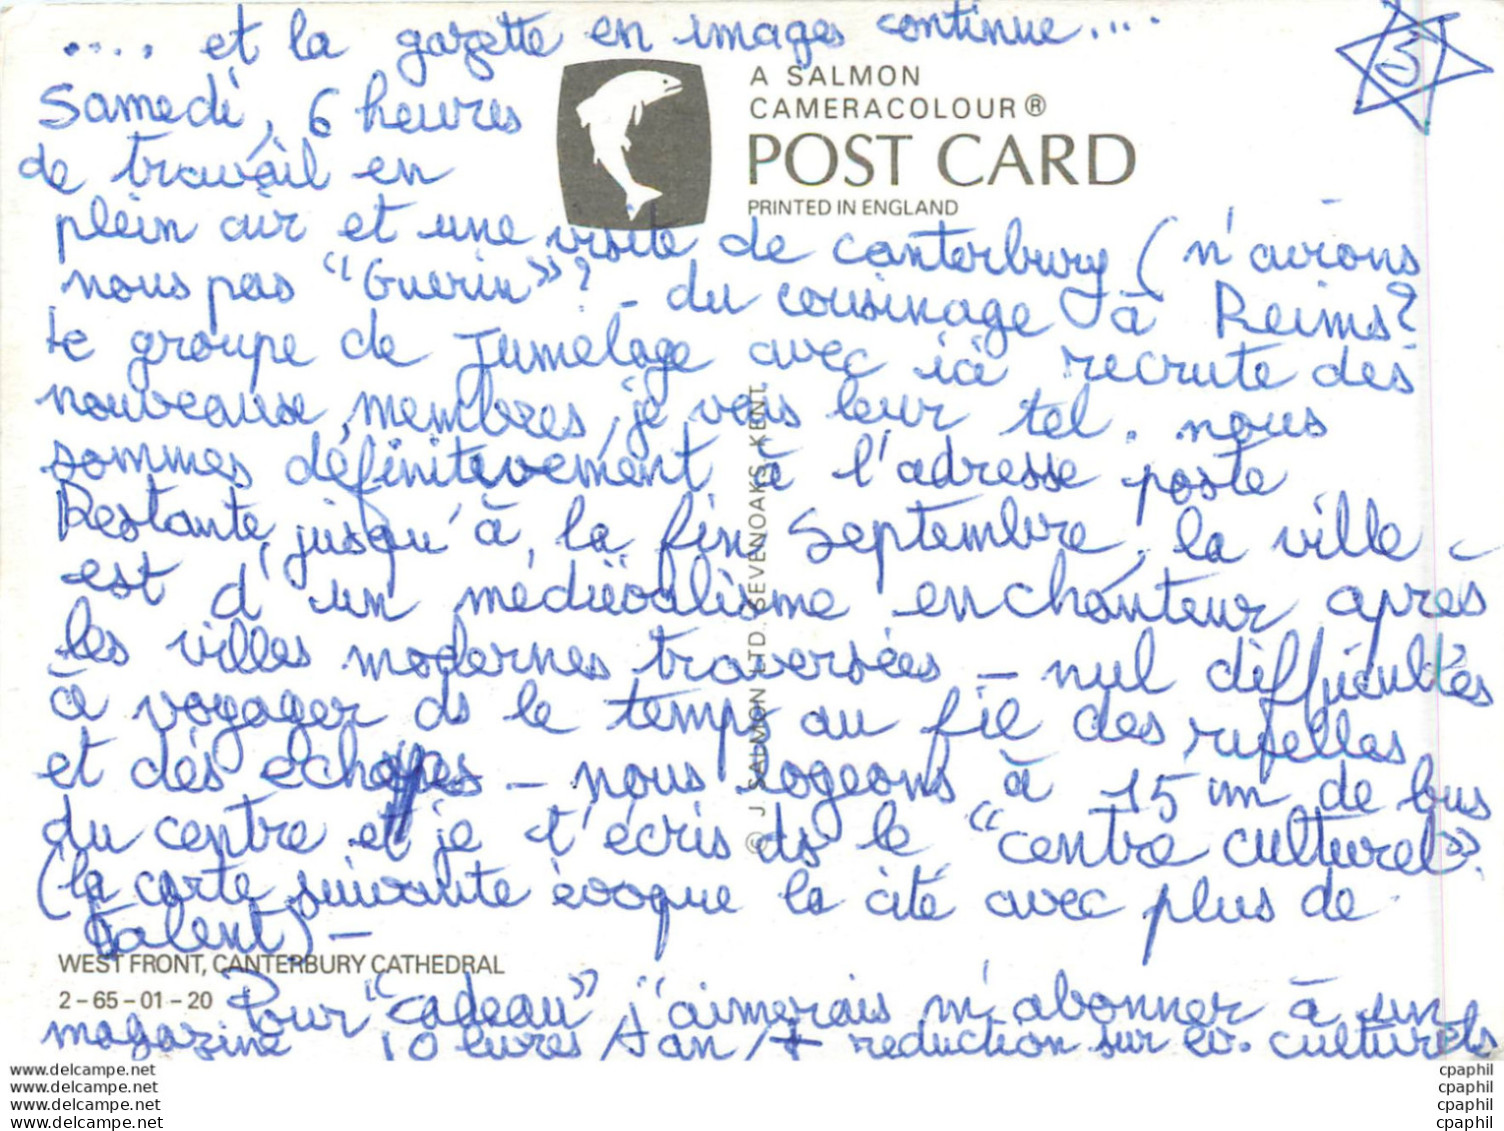 .... et la gazette en images continue....
5
Samedi, 6 heures
A SALMON
CAMERACOLOUR®
POST CARD
PRINTED IN ENGLAND
de travail en
plein air et une visite de Canterbury (n'avions
nous pas "Guerin"? - du cousinage à Reims?
le groupe de Jumelage avec ici recrute des
nouveaux membres, je vais leur tel. nous
sommes définitivement à l'adresse poste
Restante, jusqu'à la fin Septembre, la ville
est d'un médiévalisme enchanteur après
les villes modernes traversées - nul difficultés
à voyager ds le temps au fil des ruelles
et des échopes - nous logeons à 15 mn de bus
du centre et je t'écris ds le "centre culturel".
(la carte suivante évoque la cité avec plus de
talent) -
© J. SALMON LTD. SEVENOAKS, KENT
WEST FRONT, CANTERBURY CATHEDRAL
2-65-01-20
Pour "cadeau" j'aimerais m'abonner à un
magazine 10 livres / 1 an / + reduction sur ev. culturels
www.delcampe.net
www.delcampe.net
www.delcampe.net
www.delcampe.net
cpaphil
cpaphil
cpaphil
cpaphil